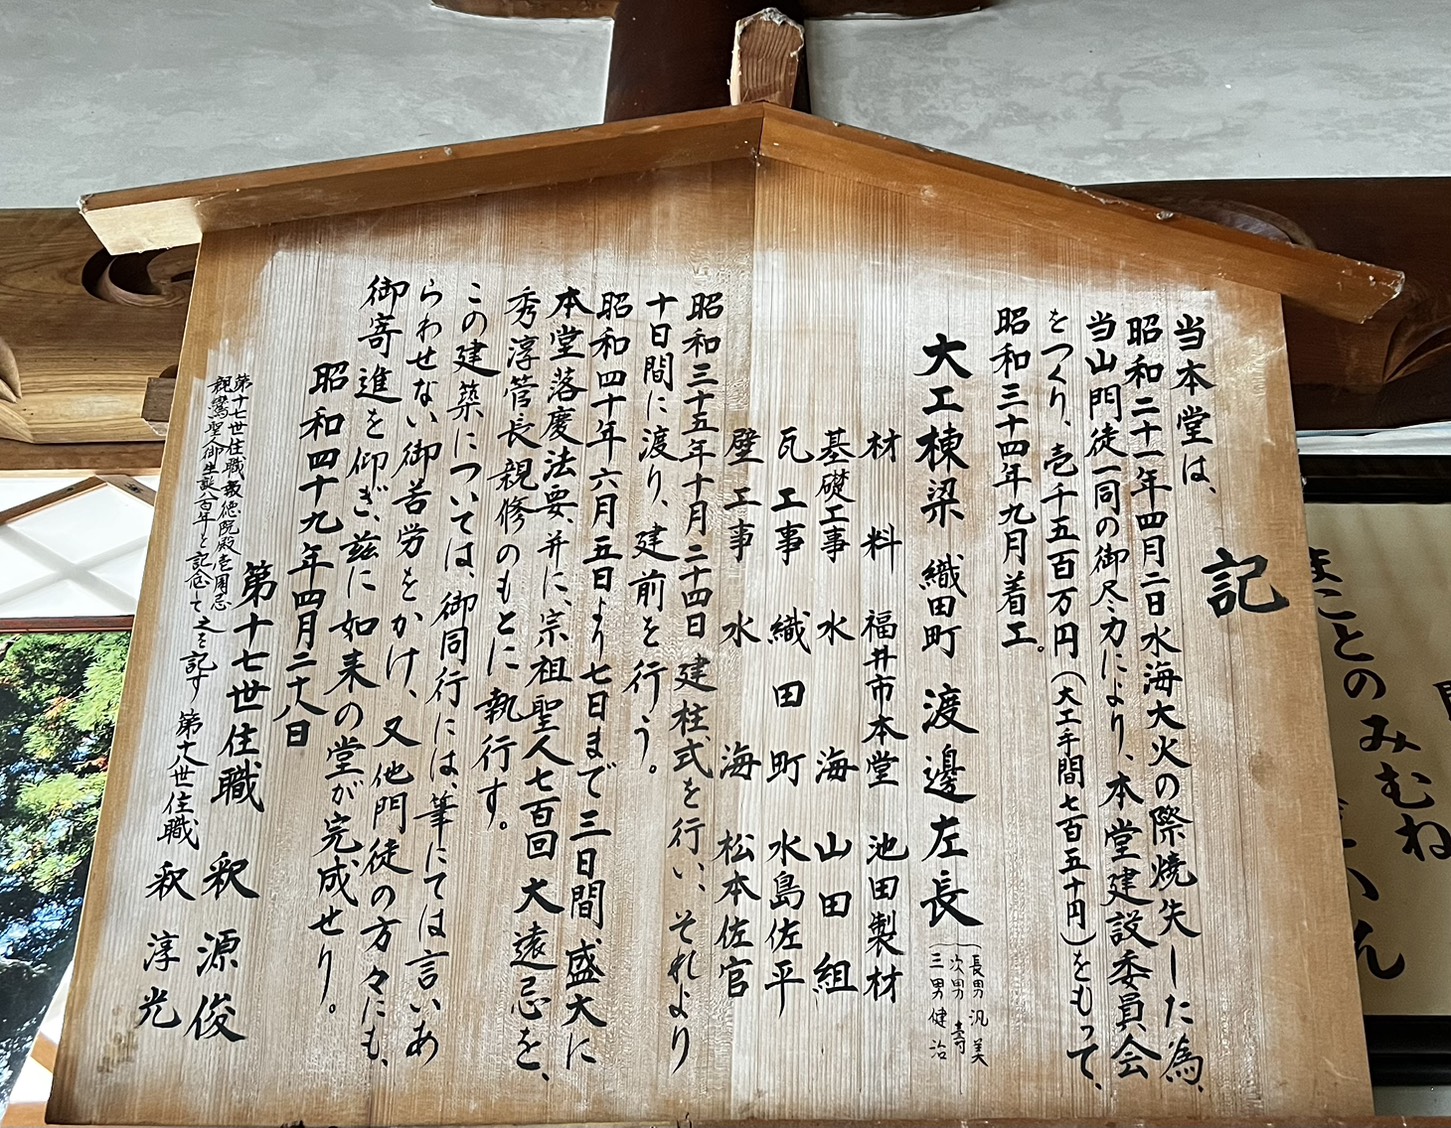 記
当本堂は、
昭和二十一年四月二日水海大火の際焼失した為、
当山門徒一同の御尽力により、本堂建設委員会
をつくり、壱千五百万円(大工手間七百五十円)をもって、
昭和三十四年九月着工。
大工棟梁 織田町 渡邊左長
長男 汎美
次男 寿
三男 健治
材料 福井市本堂 池田製材
基礎工事 水海 山田組
瓦工事 織田町 水島佐平
壁工事 水海 松本佐官
昭和三十五年十月二十四日建柱式を行い、それより
十日間に渡り、建前を行う。
昭和四十年六月五日より七日まで三日間盛大に
本堂落慶法要、并に、宗祖聖人七百回大遠忌を、
秀淳管長親修のもとに執行す。
この建築については、御同行には、筆にては言いあ
らわせない御苦労をかけ、又他門徒の方々にも、
御寄進を仰ぎ、茲に如来の堂が完成せり。
昭和四十九年四月二十八日
第十七世住職 釈 源俊
第十七世住職報徳院殿壱周忌
親鸞聖人御生誕八百年を記念して之を記す 第十八世住職 釈 淳光
まことのみむね